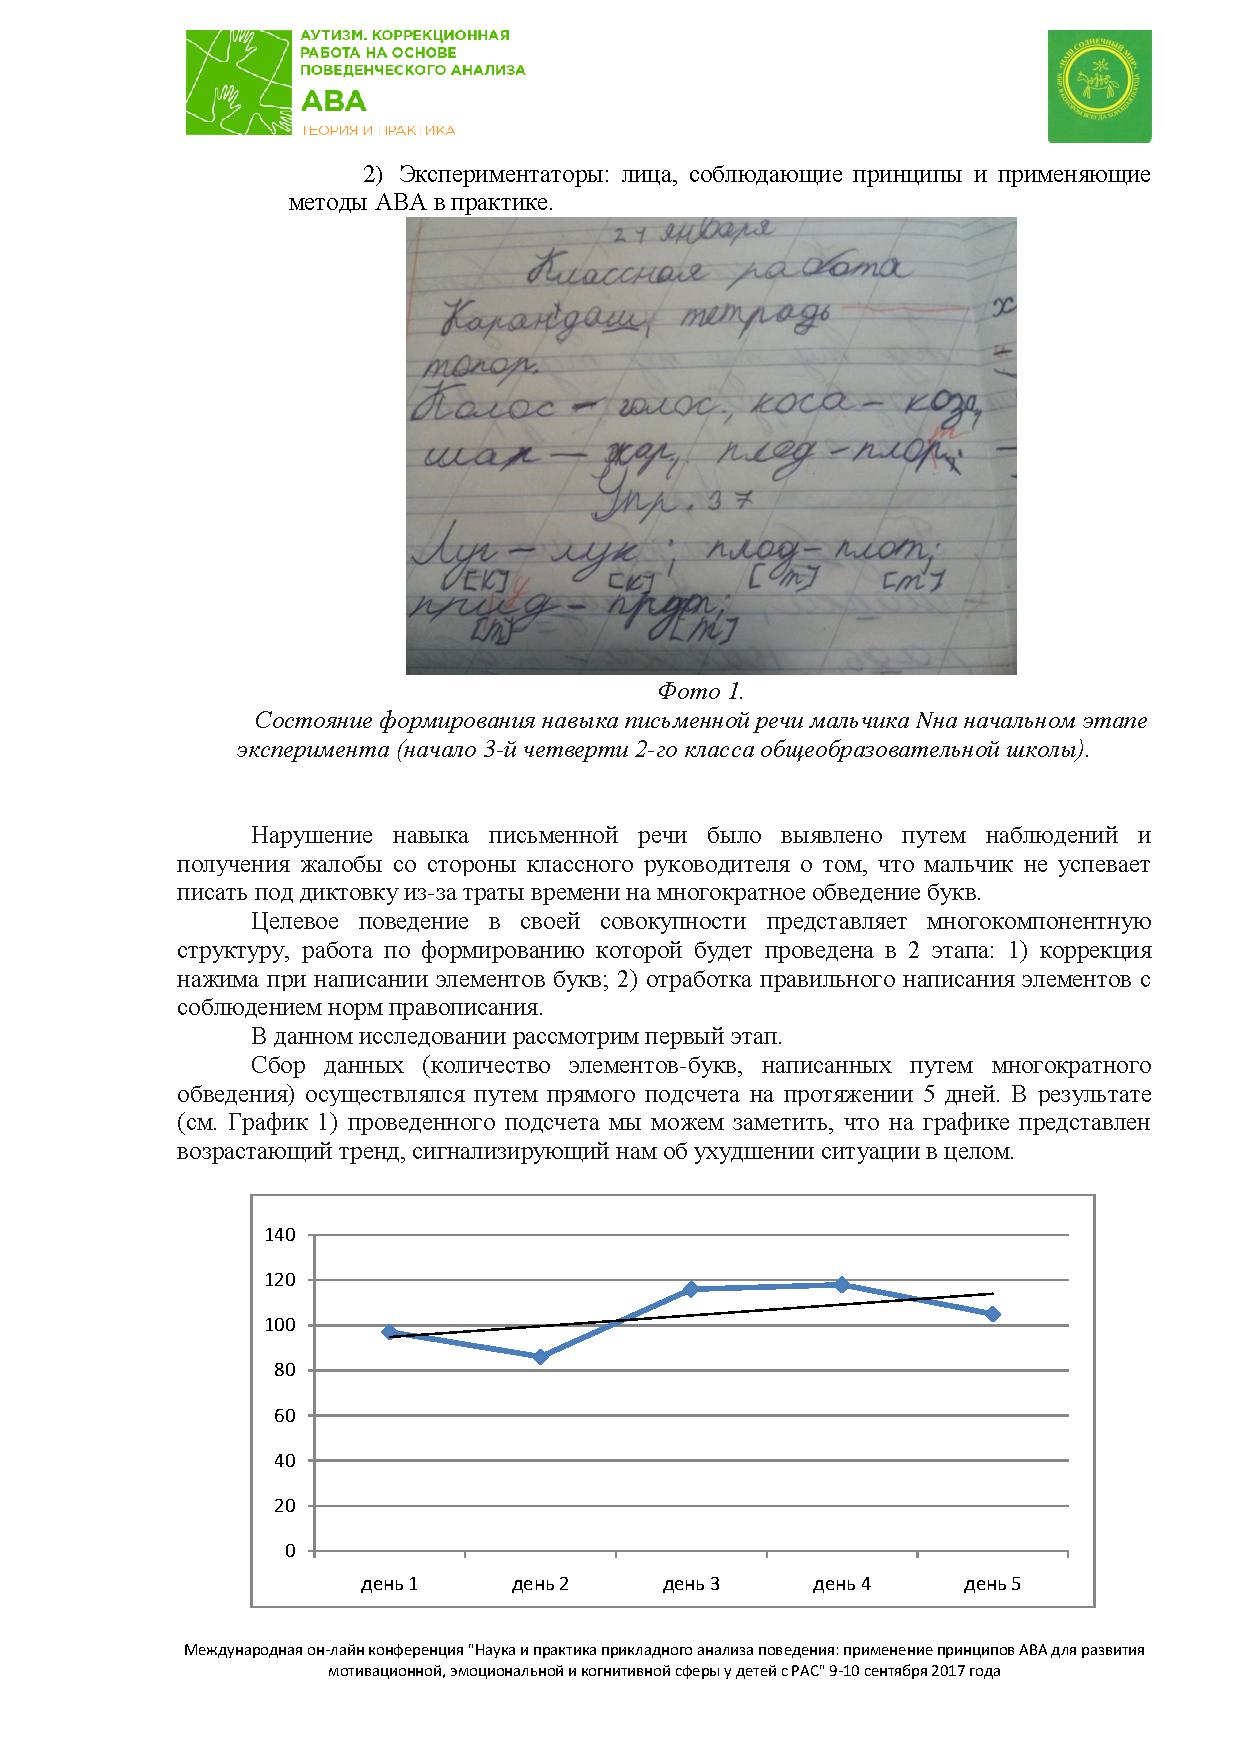 АУТИЗМ. КОРРЕКЦИОННАЯ
РАБОТА НА ОСНОВЕ
ПОВЕДЕНЧЕСКОГО АНАЛИЗА
АВА
ТЕОРИЯ И ПРАКТИКА
"НАШ СОЛНЕЧНЫЙ МИР"
МИР, В КОТОРОМ ВСЕГДА ХОРОШАЯ ПОГОДА
2) Экспериментаторы: лица, соблюдающие принципы и применяющие
методы АВА в практике.
21 января
Классная работа
Карандаш, тетрадь
топор.
Колос – голос, коса – коза,
шар – жар, плод – плот
Упр. 37
Луг – лук ; плод – плот;
[к] [к] [т] [т]
[т] [т]
Фото 1.
Состояние формирования навыка письменной речи мальчика Nна начальном этапе
эксперимента (начало 3-й четверти 2-го класса общеобразовательной школы).
Нарушение навыка письменной речи было выявлено путем наблюдений и
получения жалобы со стороны классного руководителя о том, что мальчик не успевает
писать под диктовку из-за траты времени на многократное обведение букв.
Целевое поведение в своей совокупности представляет многокомпонентную
структуру, работа по формированию которой будет проведена в 2 этапа: 1) коррекция
нажима при написании элементов букв; 2) отработка правильного написания элементов с
соблюдением норм правописания.
В данном исследовании рассмотрим первый этап.
Сбор данных (количество элементов-букв, написанных путем многократного
обведения) осуществлялся путем прямого подсчета на протяжении 5 дней. В результате
(см. График 1) проведенного подсчета мы можем заметить, что на графике представлен
возрастающий тренд, сигнализирующий нам об ухудшении ситуации в целом.
140
120
100
80
60
40
20
0
день 1 день 2 день 3 день 4 день 5
Международная он-лайн конференция "Наука и практика прикладного анализа поведения: применение принципов АВА для развития
мотивационной, эмоциональной и когнитивной сферы у детей с РАС" 9-10 сентября 2017 года